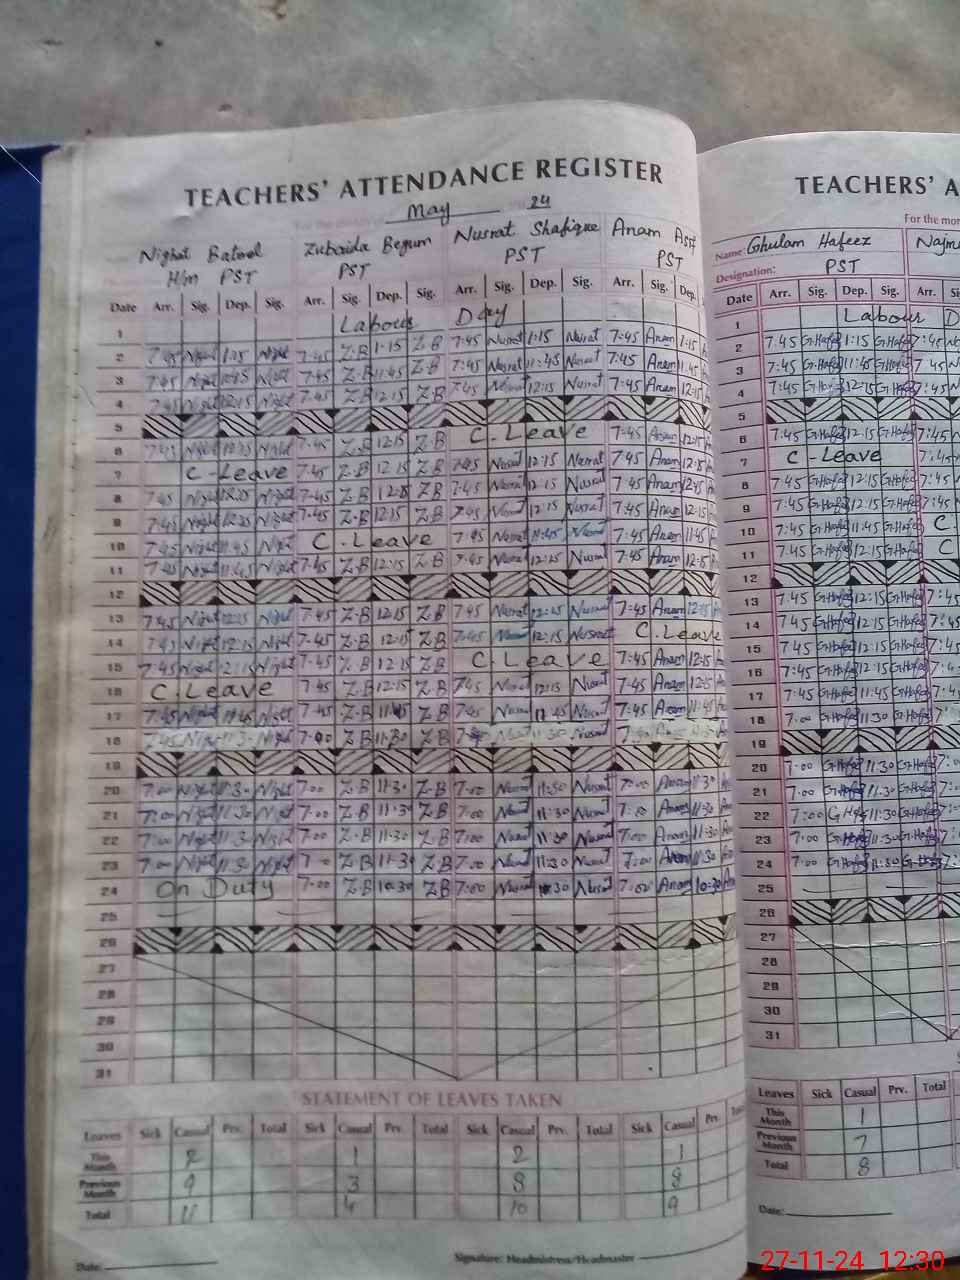 TEACHERS' ATTENDANCE REGISTER
May 24
Nighat Batool Zubaida Begum Nusrat Shafique Anam Asif
H/m PST PST PST PST
Date Arr. Sig. Dep. Sig. Arr. Sig. Dep. Sig. Arr. Sig. Dep. Sig. Arr. Sig. Dep.
1 Labour Day
2 7:45 Night 1:15 Night 7:45 Z.B 1:15 Z.B 7:45 Nusrat 1:15 Nusrat 7:45 Anam 1:15
3 7:45 Night Night 7:45 Z.B 11:45 Z.B 7:45 Nusrat 11:45 Nusrat 7:45 Anam 11:45
4 7:45 Night 12:15 Night 7:45 Z.B 12:15 Z.B 7:45 Nusrat 12:15 Nusrat 7:45 Anam 12:15
5
6 7:45 Night 12:15 Night 7:45 Z.B 12:15 Z.B C-Leave 7:45 Anam 12:15
7 C-Leave 7:45 Z.B 12:15 Z.B 7:45 Nusrat 12:15 Nusrat 7:45 Anam 12:15
8 7:45 Night 12:15 Night 7:45 Z.B 12:15 Z.B 7:45 Nusrat 12:15 Nusrat 7:45 Anam 12:15
9 7:45 Night 12:15 Night 7:45 Z.B 12:15 Z.B 7:45 Nusrat 12:15 Nusrat 7:45 Anam 12:15
10 7:45 Night 11:45 Night C.Leave 7:45 Nusrat 11:45 Nusrat 7:45 Anam 11:45
11 7:45 Night Night 7:45 Z.B 12:15 Z.B 7:45 Nusrat 12:15 Nusrat 7:45 Anam 12:15
12
13 7:45 Night 12:15 Night 7:45 Z.B 12:15 Z.B 7:45 Nusrat 12:15 Nusrat 7:45 Anam 12:15
14 7:45 Night 12:15 Night 7:45 Z.B 12:15 Z.B 7:45 12:15 Nusrat C.Leave
15 7:45 Night 12:15 Night 7:45 Z.B 12:15 Z.B C.Leave 7:45 Anam 12:15
16 C.Leave 7:45 Z.B 12:15 Z.B 7:45 Nusrat 12:15 Nusrat 7:45 Anam 12:15
17 7:45 Night 11:45 Night 7:45 Z.B 11:45 Z.B 7:45 Nusrat 11:45 Nusrat 7:45 Anam 11:45
18 7:45 Night 11:30 Night 7:00 Z.B 11:30 Z.B Nusrat 11:30 Nusrat
19
20 7:00 Night 11:30 Night 7:00 Z.B 11:30 Z.B 7:00 Nusrat 11:30 Nusrat 7:00 Anam 11:30
21 7:00 Night 11:30 Night 7:00 Z.B 11:30 Z.B 7:00 Nusrat 11:30 Nusrat 7:00 Anam 11:30
22 7:00 Night 11:30 Night 7:00 Z.B 11:30 Z.B 7:00 Nusrat 11:30 Nusrat 7:00 Anam 11:30
23 7:00 Night 11:30 Night 7:00 Z.B 11:30 Z.B 7:00 Nusrat 11:30 Nusrat 7:00 Anam 11:30
24 On Duty 7:00 Z.B 10:30 Z.B 7:00 Nusrat 10:30 Nusrat 7:00 Anam 10:30
25
26
27
28
29
30
31
STATEMENT OF LEAVES TAKEN
Leaves Sick Casual Prv. Total Sick Casual Prv. Total Sick Casual Prv. Total Sick Casual Prv.
This Month 2 1 2 1
Previous Month 9 3 8 8
Total 11 4 10 9
Date:
Signature: Headmistress/Headmaster
TEACHERS' A
For the mon
Name: Ghulam Hafeez
Designation: PST
Date Arr. Sig. Dep. Sig. Arr.
1 Labour D
2 7:45 G.Hafez 1:15 G.Hafez 7:45
3 7:45 G.Hafez 11:45 G.Hafez 7:45
4 7:45 G.Hafez 12:15 G.Hafez 7:45
5
6 7:45 G.Hafez 12:15 G.Hafez 7:45
7 C-Leave
8 7:45 G.Hafez 12:15 G.Hafez 7:45
9 7:45 G.Hafez 12:15 G.Hafez 7:45
10 7:45 G.Hafez 11:45 G.Hafez C.
11 7:45 G.Hafez 12:15 G.Hafez C
12
13 7:45 G.Hafez 12:15 G.Hafez
14 7:45 G.Hafez 12:15 G.Hafez
15 7:45 G.Hafez 12:15 G.Hafez
16 7:45 G.Hafez 12:15 G.Hafez
17 7:45 G.Hafez 11:45 G.Hafez
18 7:00 G.Hafez 11:30 G.Hafez
19
20 7:00 G.Hafez 11:30 G.Hafez
21 7:00 G.Hafez 11:30 G.Hafez
22 7:00 G.Hafez 11:30 G.Hafez
23 7:00 G.Hafez 11:30 G.Hafez
24 7:00 G.Hafez 11:30 G.Hafez
25
26
27
28
29
30
31
Leaves Sick Casual Prv. Total
This Month 1
Previous Month 7
Total 8
Date:
27-11-24 12:30